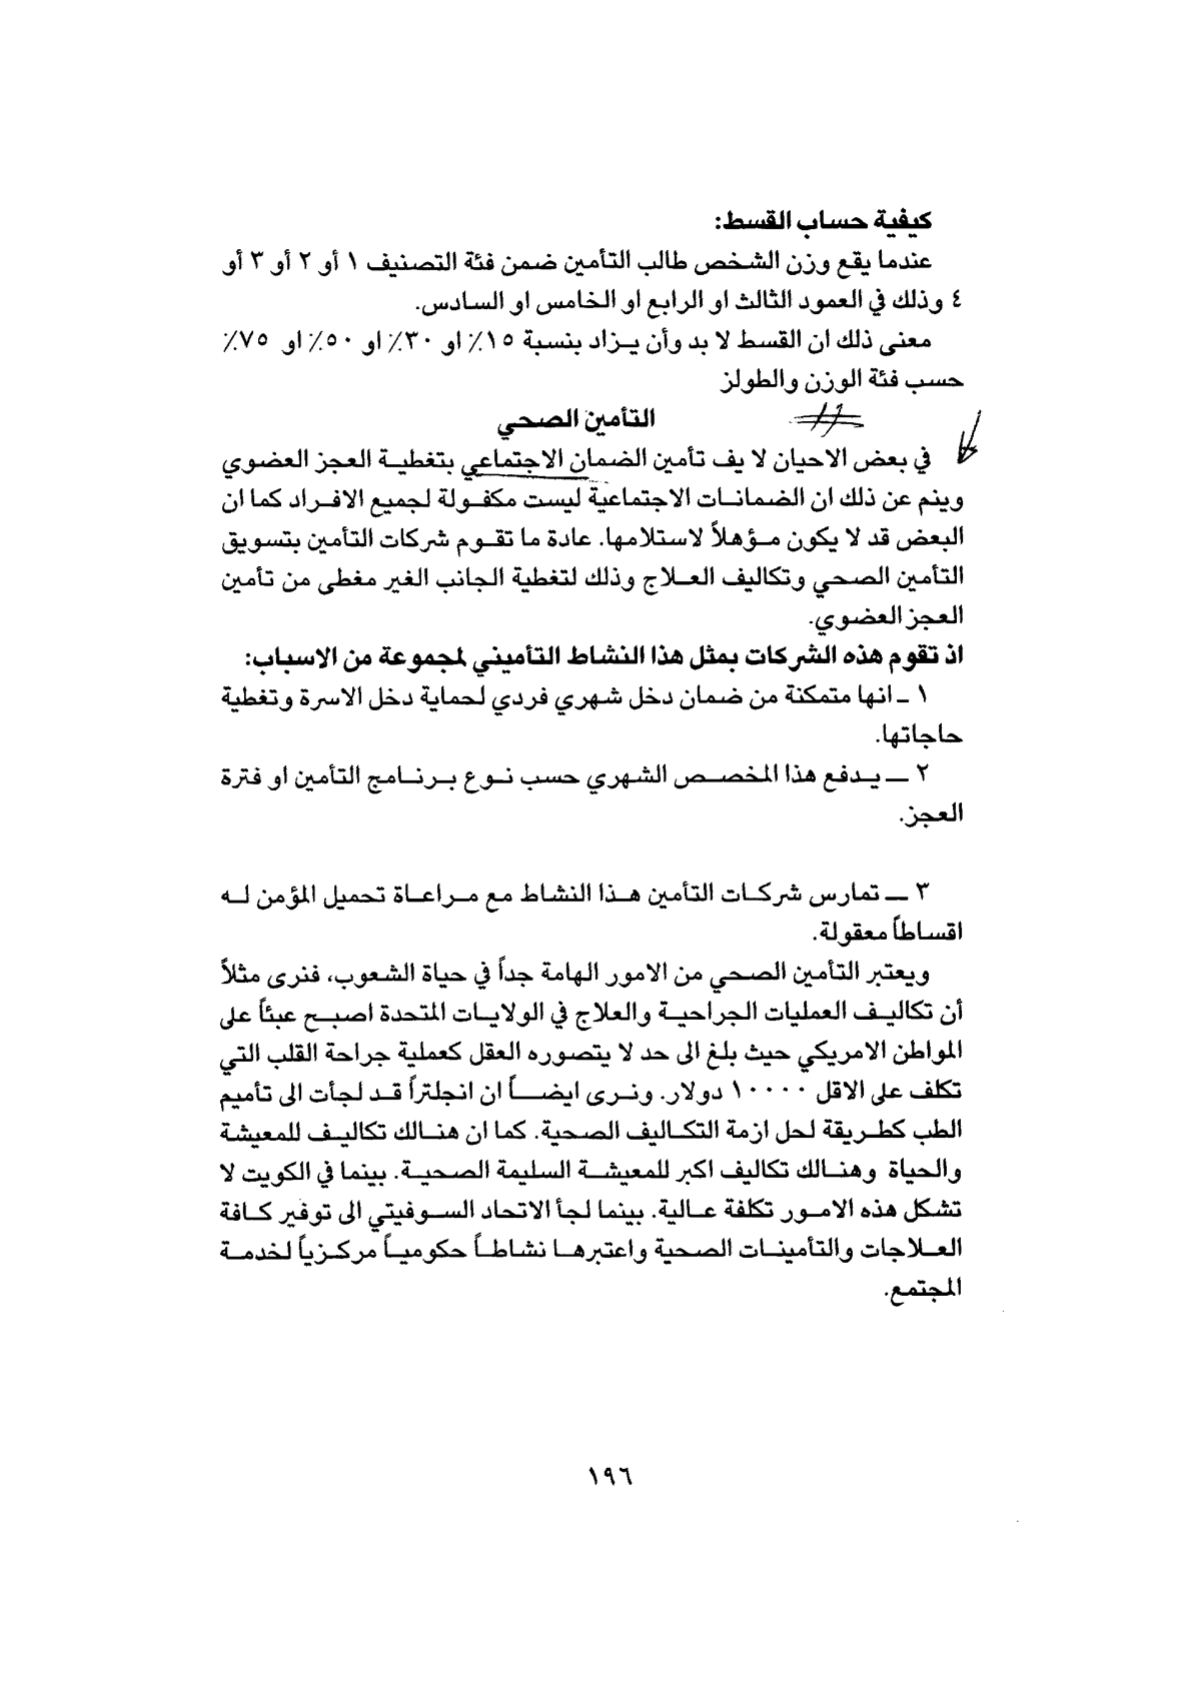 كيفية حساب القسط:
عندما يقع وزن الشخص طالب التأمين ضمن فئة التصنيف ١ أو ٢ أو ٣ أو
٤ وذلك في العمود الثالث او الرابع او الخامس او السادس.
معنى ذلك ان القسط لا بد وأن يزاد بنسبة ١٥٪ او ٣٠٪ او ٥٠٪ او ٧٥٪
حسب فئة الوزن والطولز
التأمين الصحي
في بعض الاحيان لا يف تأمين الضمان الاجتماعي بتغطية العجز العضوي
وينم عن ذلك ان الضمانات الاجتماعية ليست مكفولة لجميع الافراد كما ان
البعض قد لا يكون مؤهلاً لاستلامها. عادة ما تقوم شركات التأمين بتسويق
التأمين الصحي وتكاليف العلاج وذلك لتغطية الجانب الغير مغطى من تأمين
العجز العضوي.
اذ تقوم هذه الشركات بمثل هذا النشاط التأميني لمجموعة من الاسباب:
١ ـ انها متمكنة من ضمان دخل شهري فردي لحماية دخل الاسرة وتغطية
حاجاتها.
٢ ــ يدفع هذا المخصص الشهري حسب نوع برنامج التأمين او فترة
العجز.
٣ ــ تمارس شركات التأمين هذا النشاط مع مراعاة تحميل المؤمن له
اقساطاً معقولة.
ويعتبر التأمين الصحي من الامور الهامة جداً في حياة الشعوب، فنرى مثلاً
أن تكاليف العمليات الجراحية والعلاج في الولايات المتحدة اصبح عبئاً على
المواطن الامريكي حيث بلغ الى حد لا يتصوره العقل كعملية جراحة القلب التي
تكلف على الاقل ١٠٠٠٠ دولار. ونرى ايضاً ان انجلتراً قد لجأت الى تأميم
الطب كطريقة لحل ازمة التكاليف الصحية. كما ان هنالك تكاليف للمعيشة
والحياة وهنالك تكاليف اكبر للمعيشة السليمة الصحية. بينما في الكويت لا
تشكل هذه الامور تكلفة عالية. بينما لجأ الاتحاد السوفيتي الى توفير كافة
العلاجات والتأمينات الصحية واعتبرها نشاطاً حكومياً مركزياً لخدمة
المجتمع.
١٩٦